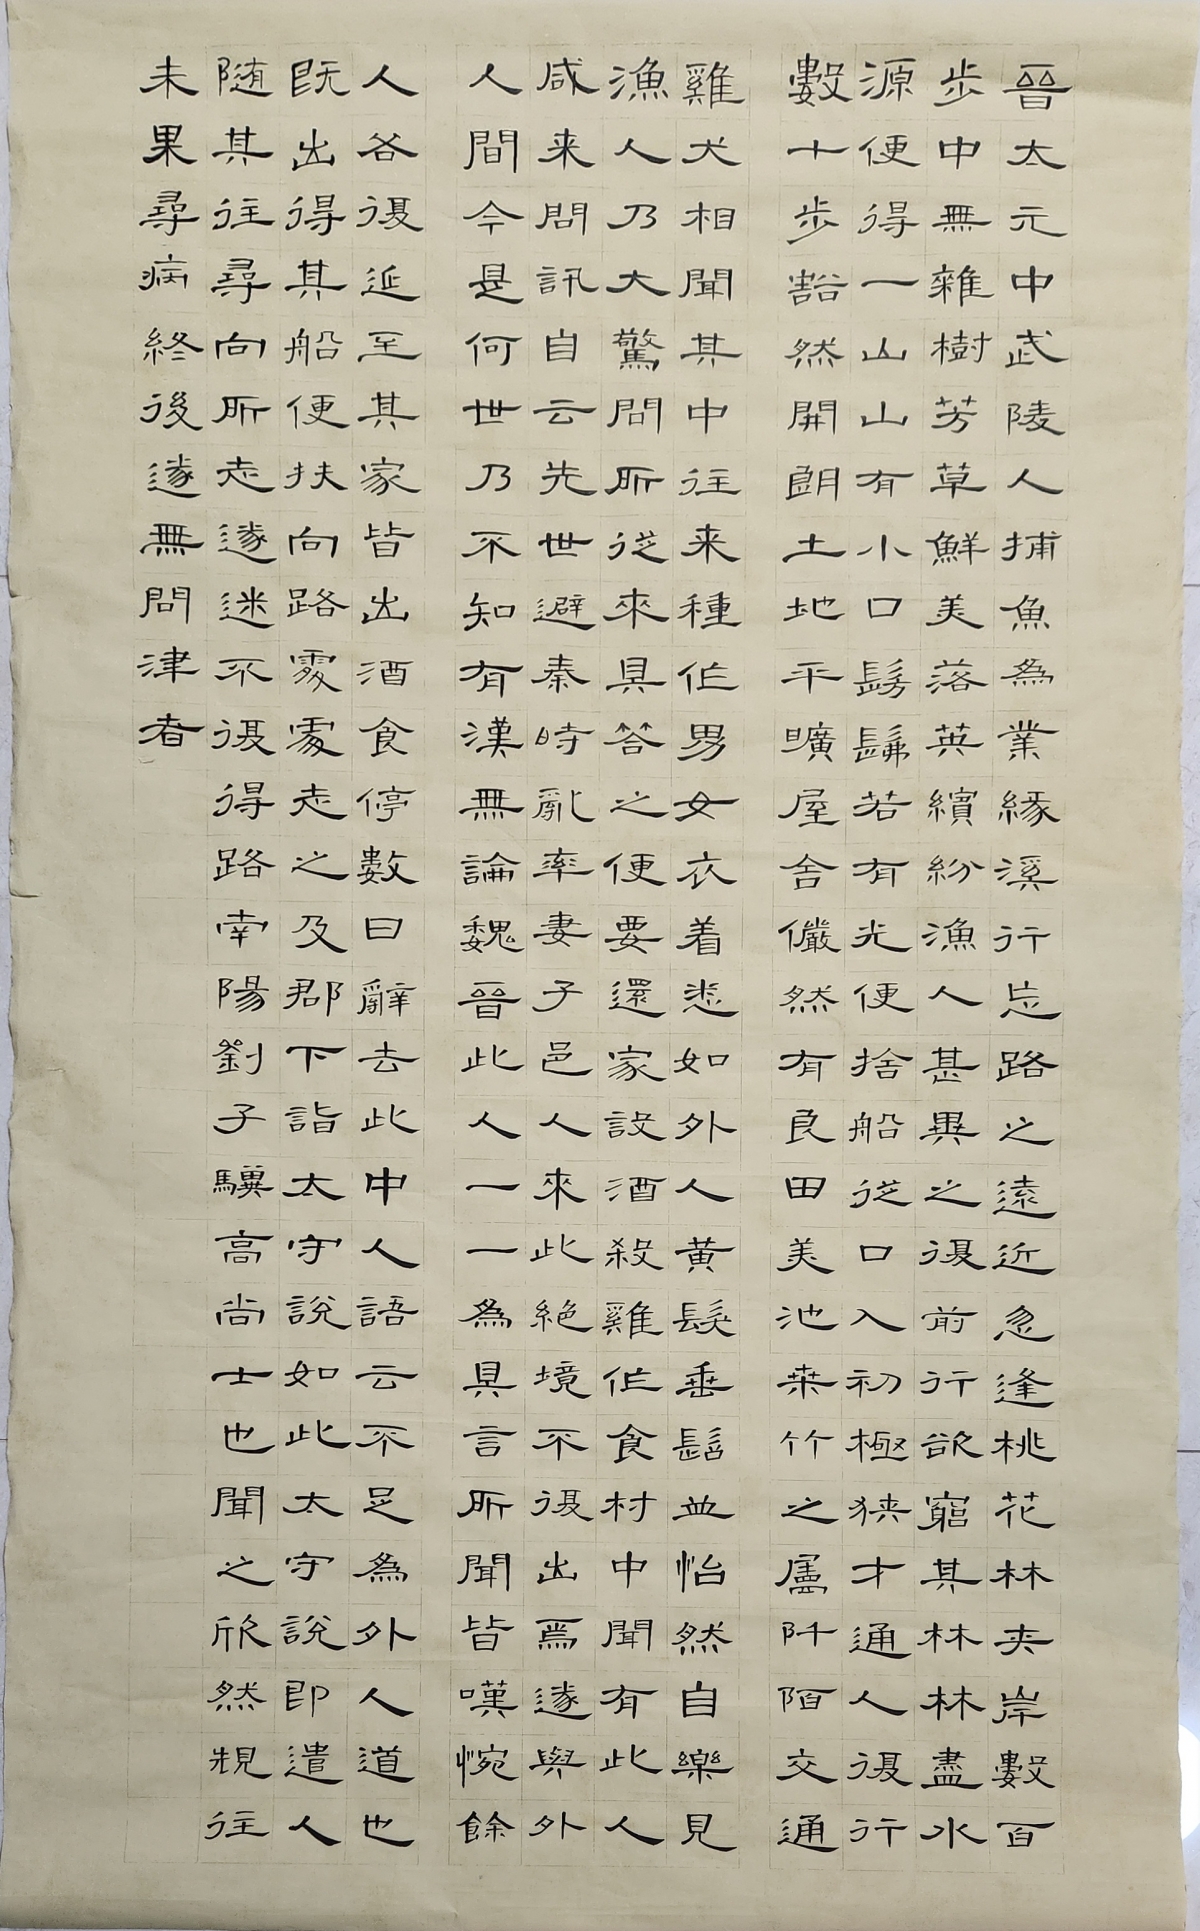 晉太元中武陵人捕魚為業緣溪行忘路之遠近忽逢桃花林夾岸數百
步中無雜樹芳草鮮美落英繽紛漁人甚異之復前行欲窮其林林盡水
源便得一山山有小口髣髴若有光便捨船從口入初極狹才通人復行
數十步豁然開朗土地平曠屋舍儼然有良田美池桑竹之屬阡陌交通
雞犬相聞其中往来種作男女衣着悉如外人黃髮垂髫並怡然自樂見
漁人乃大驚問所從來具答之便要還家設酒殺雞作食村中聞有此人
咸来問訊自云先世避秦時亂率妻子邑人來此絕境不復出焉遂與外
人間今是何世乃不知有漢無論魏晉此人一一為具言所聞皆嘆惋餘
人各復延至其家皆出酒食停數日辭去此中人語云不足為外人道也
既出得其船便扶向路處處志之及郡下詣太守說如此太守說即遣人
隨其往尋向所志遂迷不復得路南陽劉子驥高尚士也聞之欣然規往
未果尋病終後遂無問津者